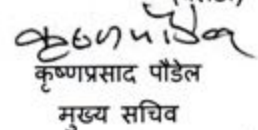 कृष्णप्रसाद पौडेल
मुख्य सचिव